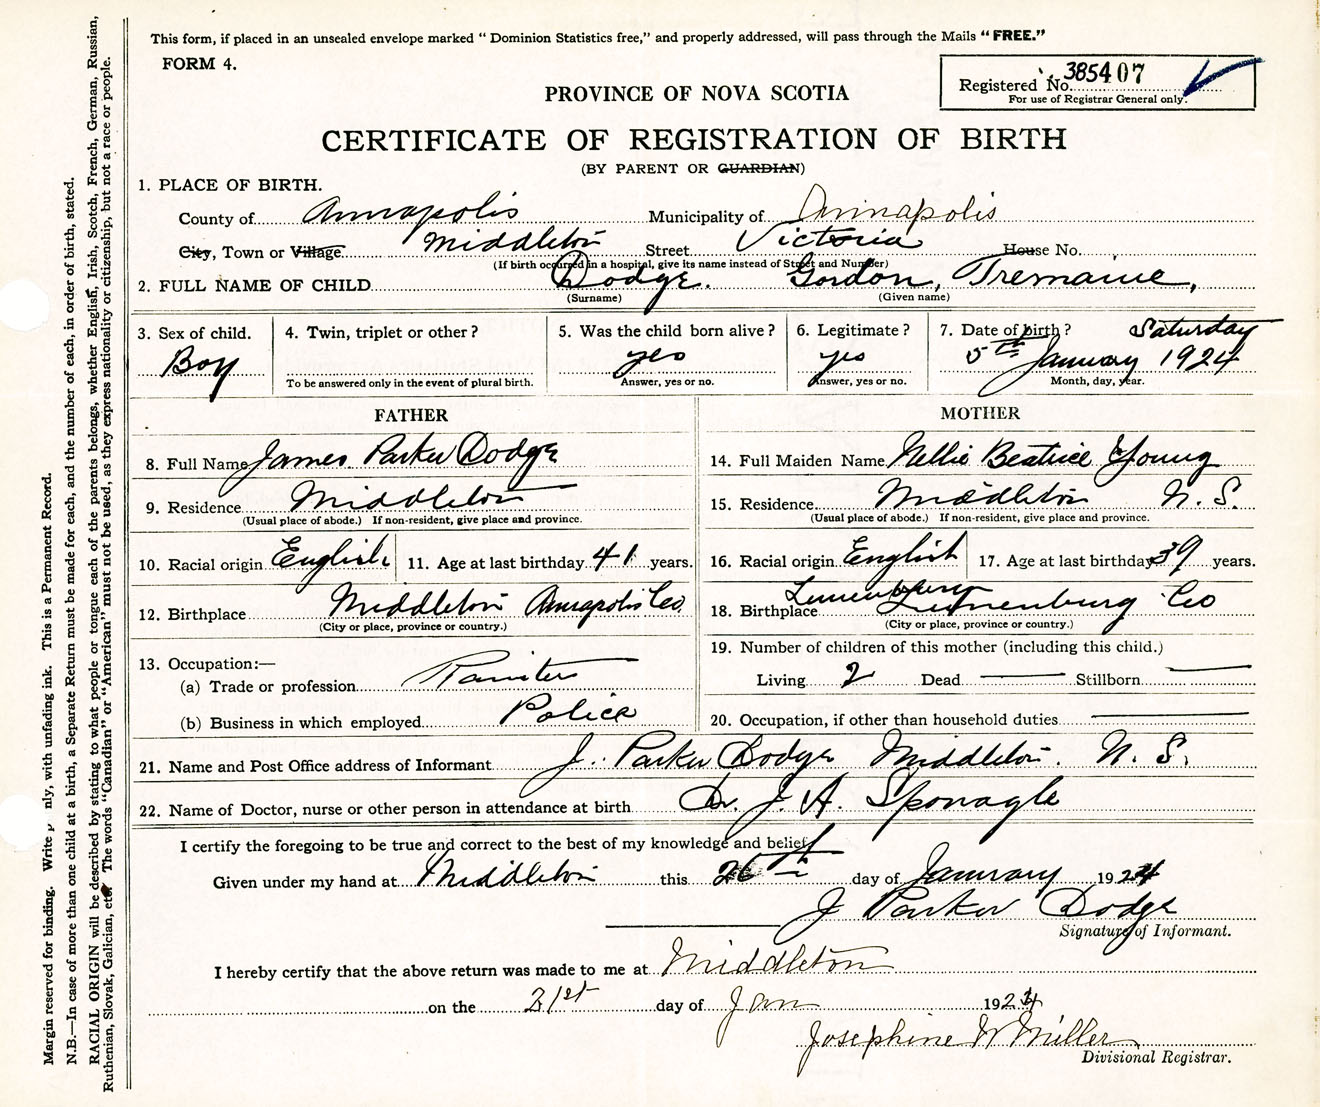 This form, if placed in an unsealed envelope marked " Dominion Statistics free," and properly addressed, will pass through the Mails " FREE."
FORM 4.
Registered No. 385407
For use of Registrar General only.
PROVINCE OF NOVA SCOTIA
CERTIFICATE OF REGISTRATION OF BIRTH
(BY PARENT OR GUARDIAN)
1. PLACE OF BIRTH.
County of Annapolis Municipality of Annapolis
City, Town or Village Middleton Street Victoria House No.
(If birth occurred in a hospital, give its name instead of Street and Number)
2. FULL NAME OF CHILD Dodge. Gordon, Tremaine,
(Surname) (Given name)
3. Sex of child. 4. Twin, triplet or other? 5. Was the child born alive? 6. Legitimate? 7. Date of birth? Saturday
Boy yes yes 5th January 1924
To be answered only in the event of plural birth. Answer, yes or no. Answer, yes or no. Month, day, year.
FATHER
8. Full Name James Parker Dodge
9. Residence Middleton
(Usual place of abode.) If non-resident, give place and province.
10. Racial origin English 11. Age at last birthday 41 years.
12. Birthplace Middleton Annapolis Co.
(City or place, province or country.)
13. Occupation:—
(a) Trade or profession Painter
(b) Business in which employed Police
MOTHER
14. Full Maiden Name Nellie Beatrice Young
15. Residence Middleton N. S.
(Usual place of abode.) If non-resident, give place and province.
16. Racial origin English 17. Age at last birthday 39 years.
Lunenburg
18. Birthplace Lunenburg Co
(City or place, province or country.)
19. Number of children of this mother (including this child.)
Living 2 Dead — Stillborn —
20. Occupation, if other than household duties —
21. Name and Post Office address of Informant J. Parker Dodge Middleton. N. S.
22. Name of Doctor, nurse or other person in attendance at birth Dr. J. A. Sponagle
I certify the foregoing to be true and correct to the best of my knowledge and belief
Given under my hand at Middleton this 26th day of January 1924
J Parker Dodge
Signature of Informant.
I hereby certify that the above return was made to me at Middleton
on the 31st day of Jan 1924
Josephine W Miller
Divisional Registrar.
Margin reserved for binding. Write nly, with unfading ink. This is a Permanent Record.
N.B.—In case of more than one child at a birth, a Separate Return must be made for each, and the number of each, in order of birth, stated.
RACIAL ORIGIN will be described by stating to what people or tongue each of the parents belongs, whether English, Irish, Scotch, French, German, Russian,
Ruthenian, Slovak, Galician, etc. The words "Canadian" or "American" must not be used, as they express nationality or citizenship, but not a race or people.